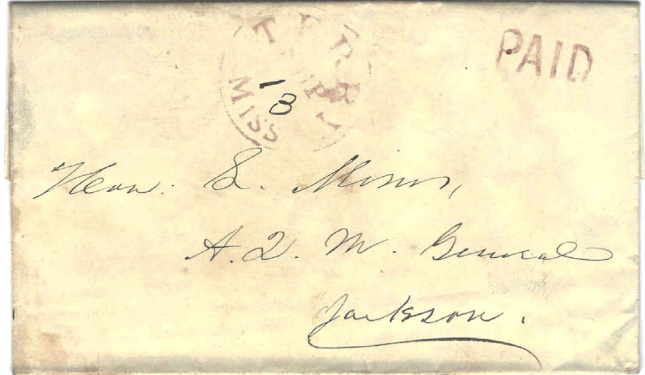 TERRY
MISS
PAID
18
Hon. L. Mims,
A. Q. M. General
Jackson.